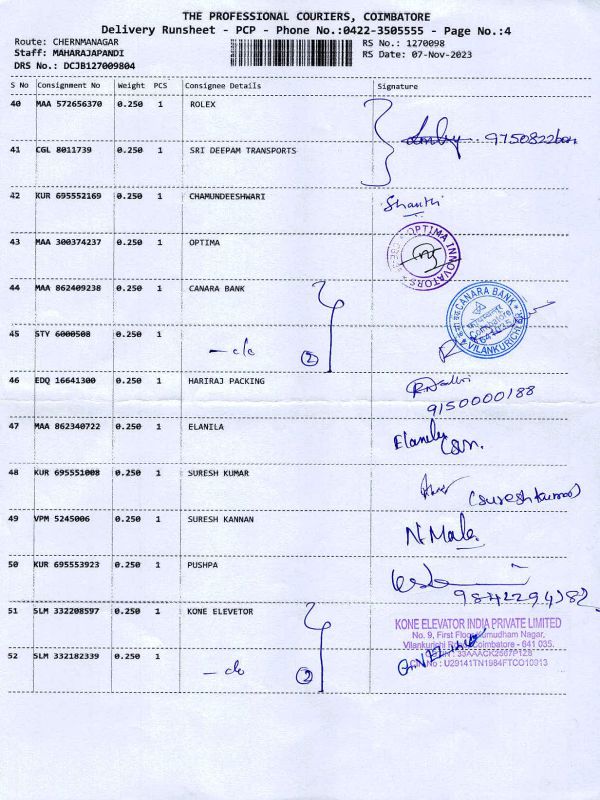 THE PROFESSIONAL COURIERS, COIMBATORE
Delivery Runsheet - PCP - Phone No.:0422-3505555 - Page No.:4
Route: CHERNMANAGAR
Staff: MAHARAJAPANDI
DRS No.: DCJB127009804
RS No.: 1270098
RS Date: 07-Nov-2023
S No Consignment No Weight PCS Consignee Details Signature
40 MAA 572656370 0.250 1 ROLEX
41 CGL 8011739 0.250 1 SRI DEEPAM TRANSPORTS
42 KUR 695552169 0.250 1 CHAMUNDEESHWARI Shanthi
43 MAA 300374237 0.250 1 OPTIMA OPTIMA INNOVATORS
44 MAA 862409238 0.250 1 CANARA BANK CANARA BANK
Coimbatore
641035
VILANKURICHI BR
45 STY 6000508 0.250 1 2
46 EDQ 16641300 0.250 1 HARIRAJ PACKING
9150000188
47 MAA 862340722 0.250 1 ELANILA
48 KUR 695551008 0.250 1 SURESH KUMAR (Sureshkumar)
49 VPM 5245006 0.250 1 SURESH KANNAN N Mala
50 KUR 695553923 0.250 1 PUSHPA
51 SLM 332208597 0.250 1 KONE ELEVETOR KONE ELEVATOR INDIA PRIVATE LIMITED
No. 9, First Floor, Kumudham Nagar,
Vilankurichi Road, Coimbatore - 641 035.
52 SLM 332182339 0.250 1 2
: U29141TN1984FTCO10913